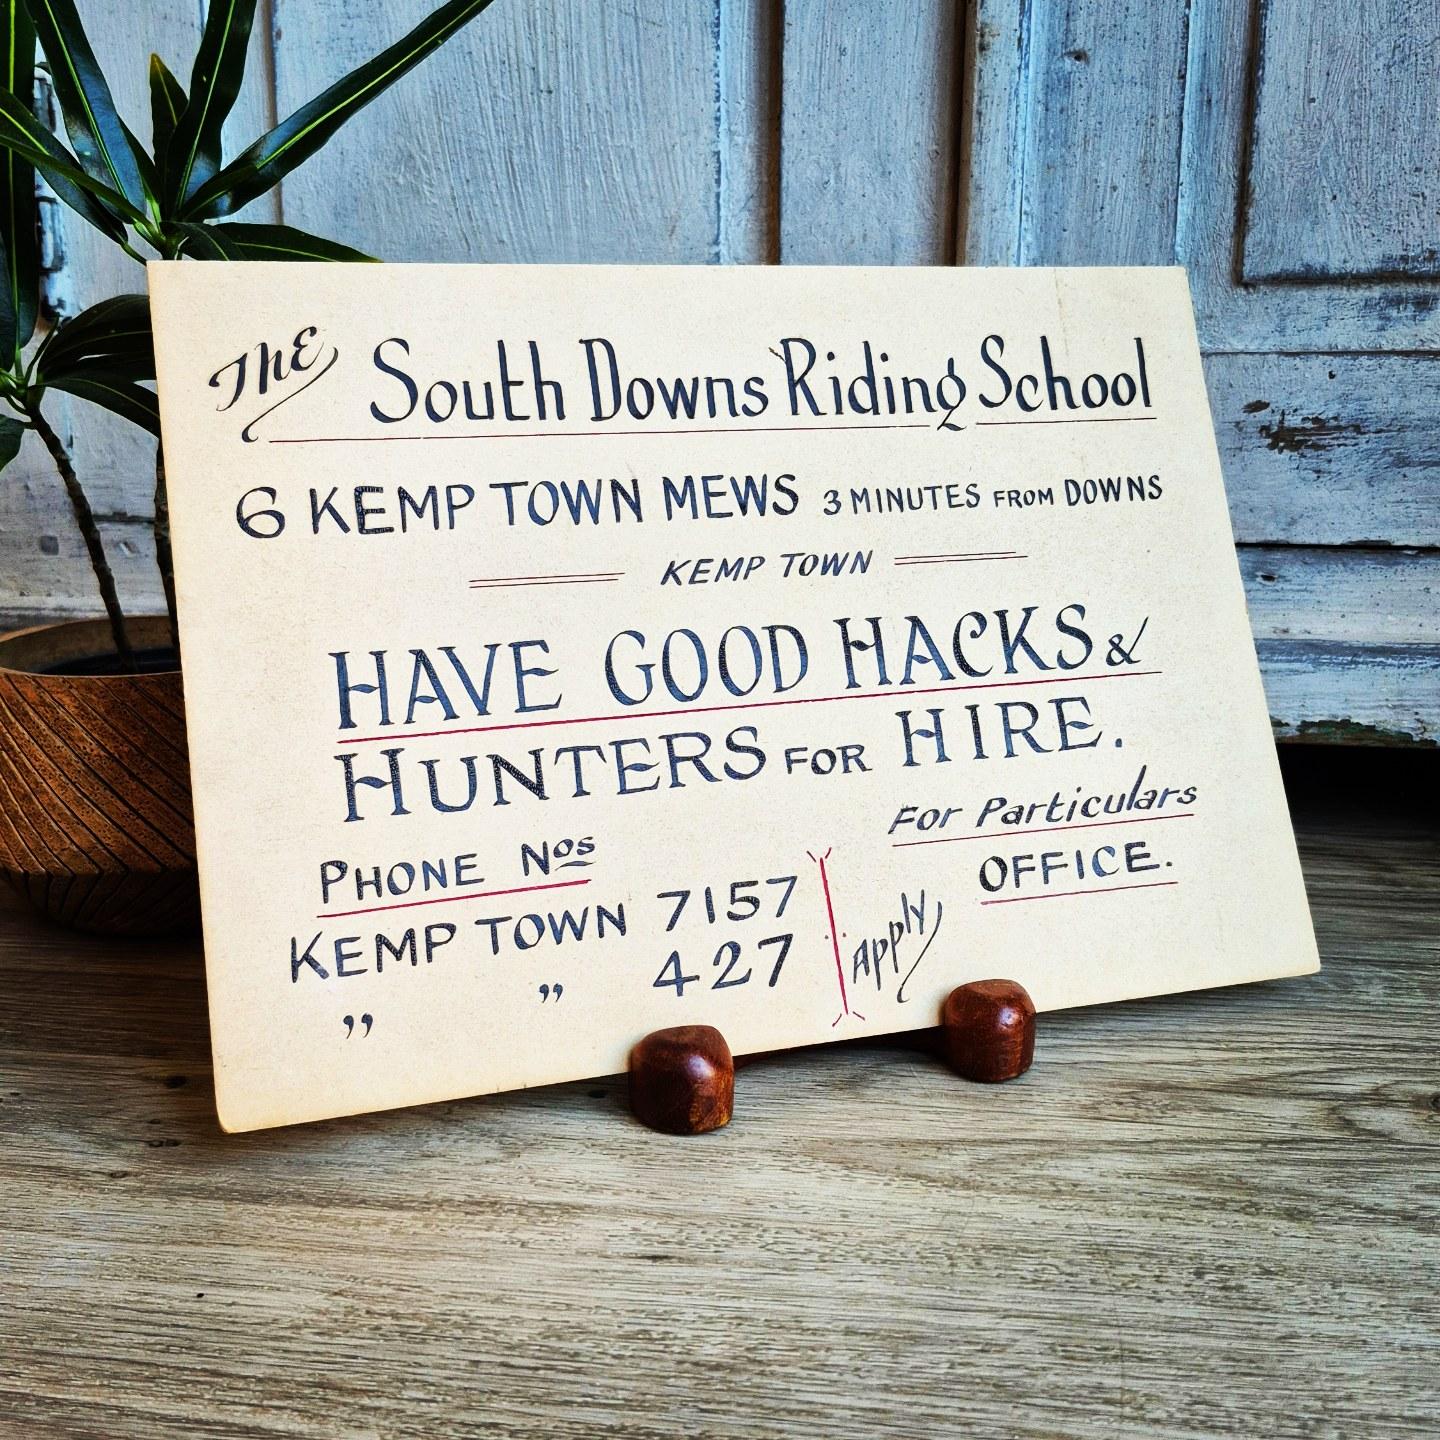 The South Downs Riding School
6 KEMP TOWN MEWS 3 MINUTES FROM DOWNS
KEMP TOWN
HAVE GOOD HACKS &
HUNTERS FOR HIRE.
PHONE Nos
KEMP TOWN 7157
" " 427
For Particulars
Apply OFFICE.